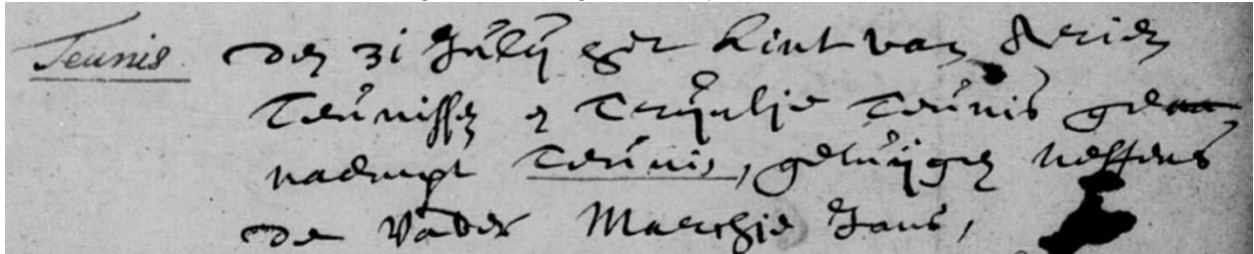 Teunis den 31 Julij het kint van Arien
Teunissen en Trijntje Teunis gena
naempt Teunis, getuijgen neffens
de Vader Maerthie Jans,